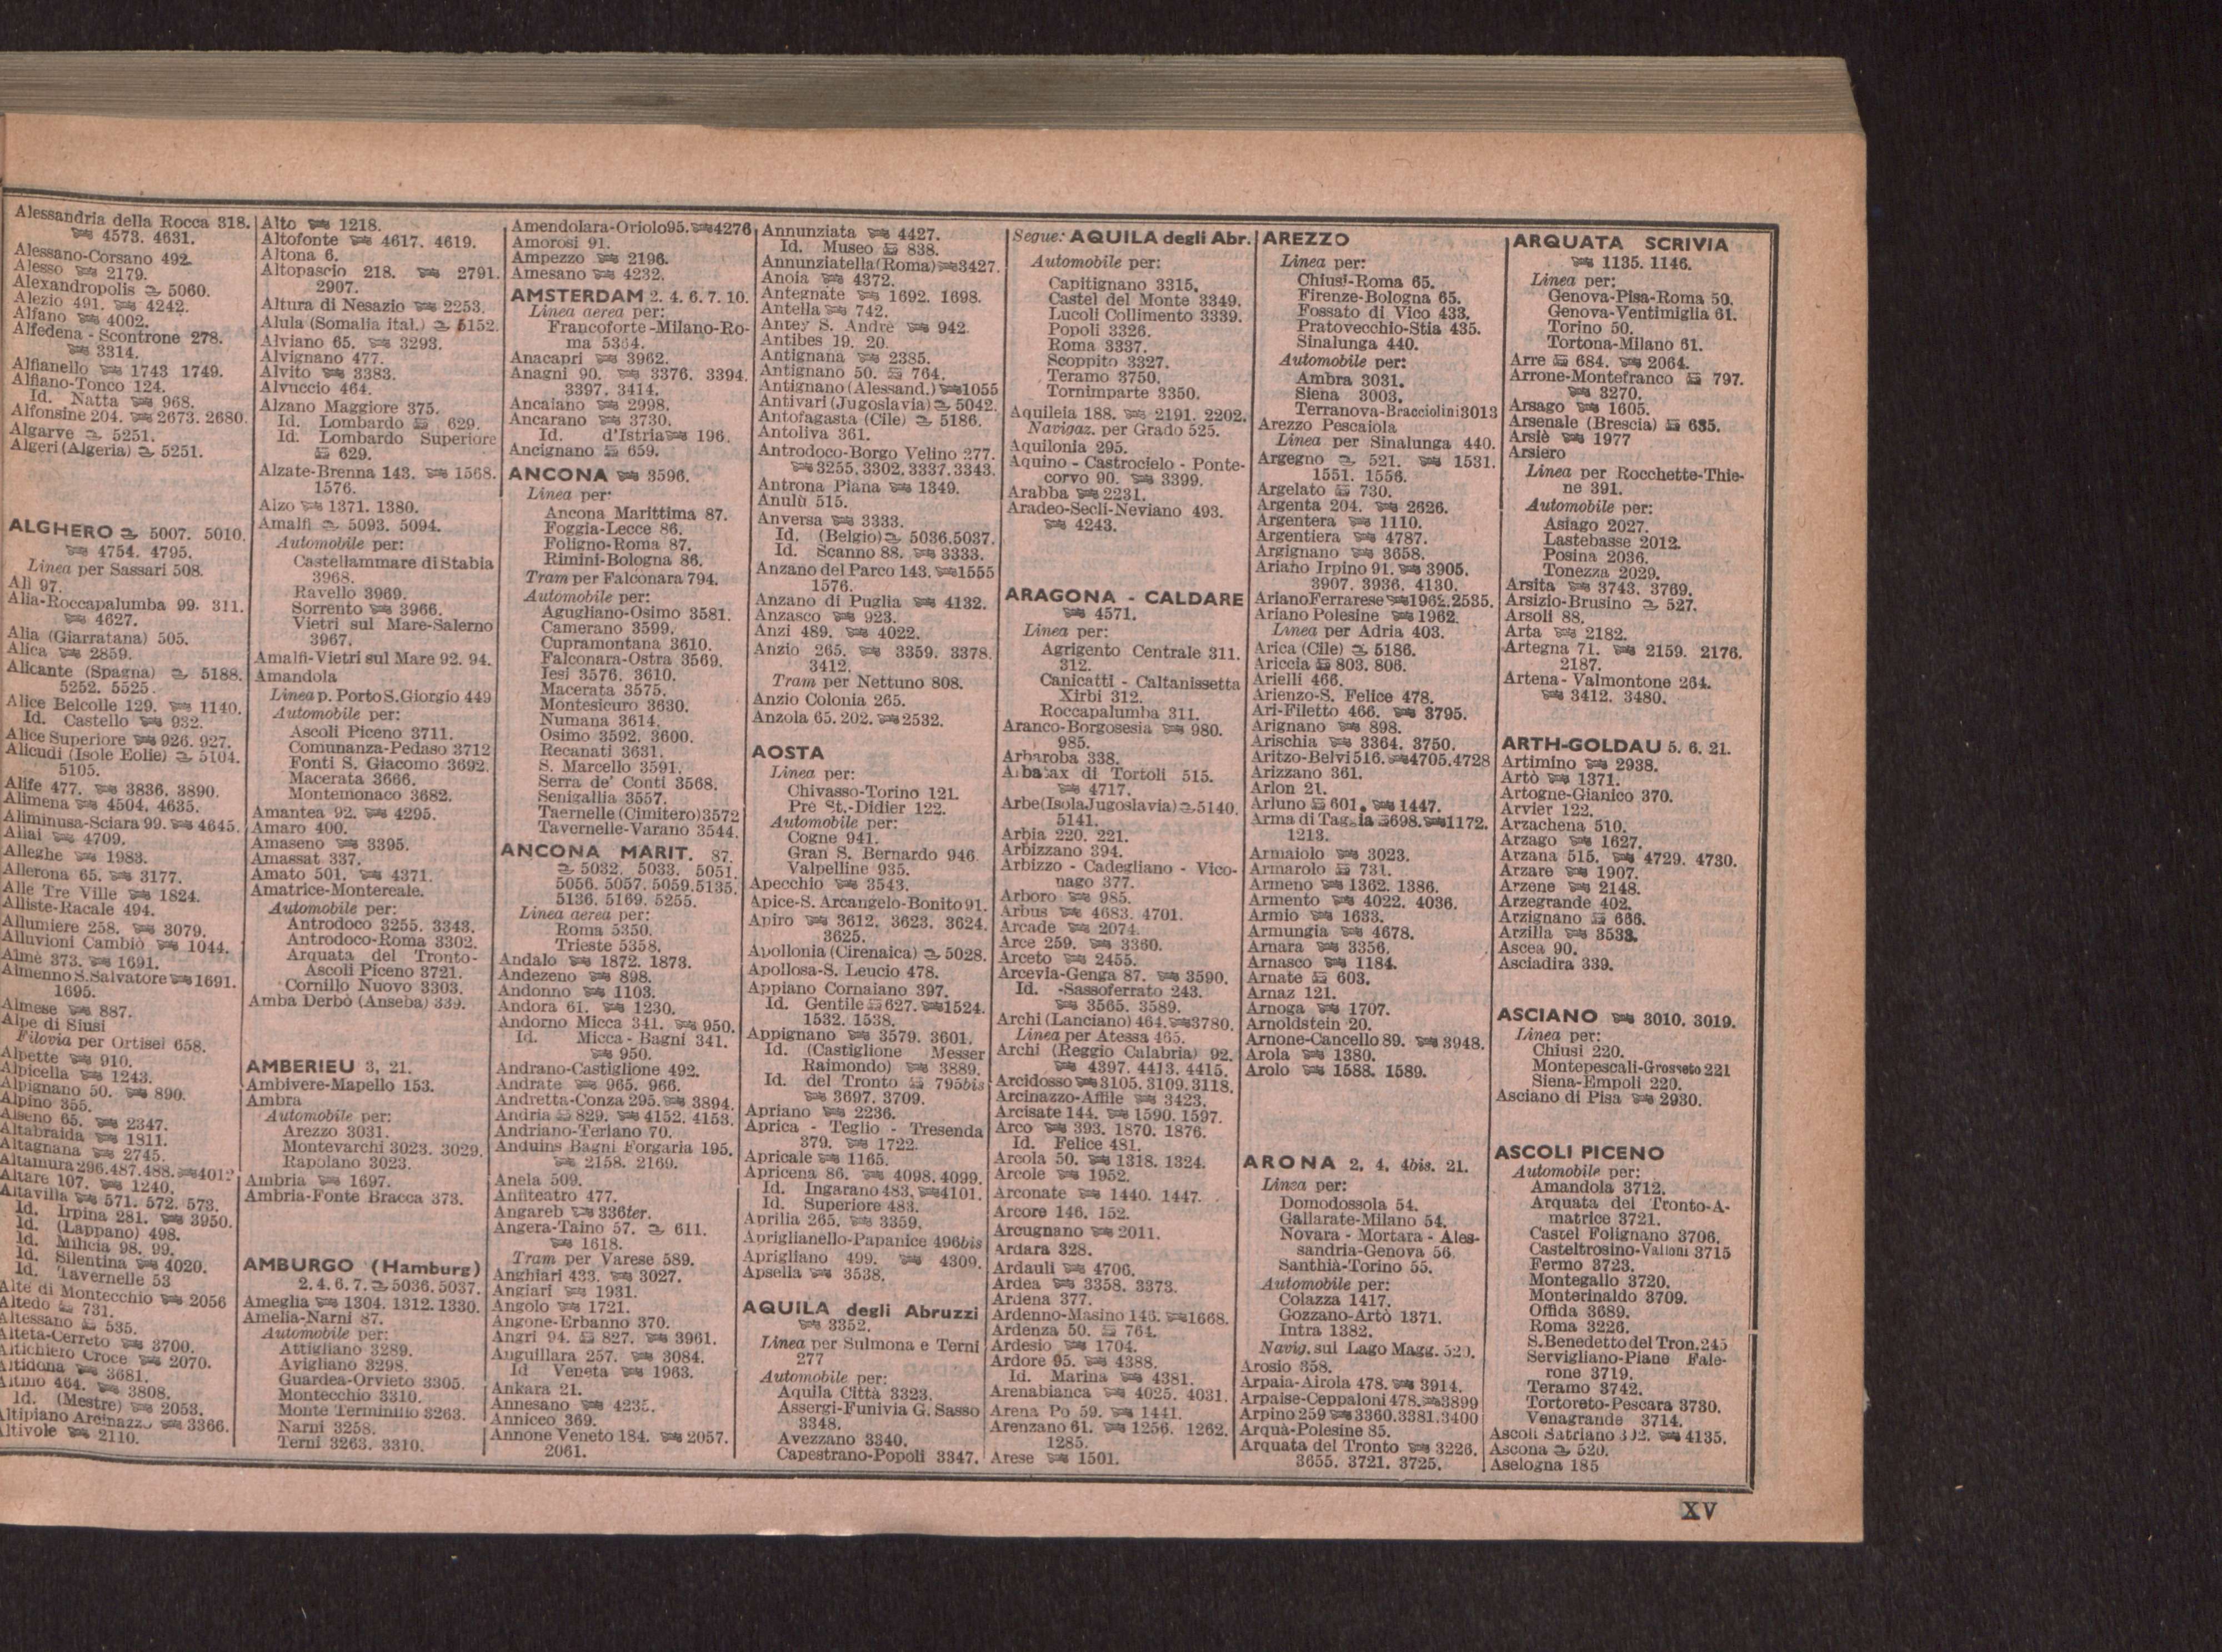 Alessandria della Rocca 318.
4573. 4631.
Alessano-Corsano 492.
Alesso 2179.
Alexandropolis 5060.
Alezio 491. 4242.
Alfano 4002.
Alfedena - Scontrone 278.
3314.
Alfianello 1743 1749.
Alfiano-Tonco 124.
Id. Natta 968.
Alfonsine 204. 2673. 2680.
Algarve 5251.
Algeri (Algeria) 5251.
ALGHERO 5007. 5010.
4754. 4795.
Linea per Sassari 508.
Alì 97.
Alia-Roccapalumba 99. 311.
4627.
Alia (Giarratana) 505.
Alica 2859.
Alicante (Spagna) 5188.
5252. 5525.
Alice Belcolle 129. 1140.
Id. Castello 932.
Alice Superiore 926. 927.
Alicudi (Isole Eolie) 5104.
5105.
Alife 477. 3836. 3890.
Alimena 4504. 4635.
Aliminusa-Sciara 99. 4645.
Allai 4709.
Alleghe 1983.
Allerona 65. 3177.
Alle Tre Ville 1824.
Alliste-Racale 494.
Allumiere 258. 3079.
Alluvioni Cambiò 1044.
Almè 373. 1691.
Almenno S.Salvatore 1691.
1695.
Almese 887.
Alpe di Siusi
Filovia per Ortisei 658.
Alpette 910.
Alpicella 1243.
Alpignano 50. 890.
Alpino 355.
Alseno 65. 2347.
Altabraida 1811.
Altagnana 2745.
Altamura 296.487.488. 4012
Altare 107. 1240.
Altavilla 571. 572. 573.
Id. Irpina 281. 3950.
Id. (Lappano) 498.
Id. Milicia 98. 99.
Id. Silentina 4020.
Id. Tavernelle 53
Alte di Montecchio 2056
Altedo 731.
Altessano 535.
Alteta-Cerreto 3700.
Altichiero Croce 2070.
Altidona 3681.
Altino 464. 3808.
Id. (Mestre) 2053.
Altipiano Arcinazzo 3366.
Altivole 2110.
Alto 1218.
Altofonte 4617. 4619.
Altona 6.
Altopascio 218. 2791.
2907.
Altura di Nesazio 2253.
Alula (Somalia ital.) 5152.
Alviano 65. 3293.
Alvignano 477.
Alvito 3383.
Alvuccio 464.
Alzano Maggiore 375.
Id. Lombardo 629.
Id. Lombardo Superiore
629.
Alzate-Brenna 143. 1568.
1576.
Alzo 1371. 1380.
Amalfi 5093. 5094.
Automobile per:
Castellammare di Stabia
3968.
Ravello 3969.
Sorrento 3966.
Vietri sul Mare-Salerno
3967.
Amalfi-Vietri sul Mare 92. 94.
Amandola
Linea p. Porto S.Giorgio 449
Automobile per:
Ascoli Piceno 3711.
Comunanza-Pedaso 3712
Fonti S. Giacomo 3692.
Macerata 3666.
Montemonaco 3682.
Amantea 92. 4295.
Amaro 400.
Amaseno 3395.
Amassat 337.
Amato 501. 4371.
Amatrice-Montereale.
Automobile per:
Antrodoco 3255. 3343.
Antrodoco-Roma 3302.
Arquata del Tronto-
Ascoli Piceno 3721.
Cornillo Nuovo 3303.
Amba Derbò (Anseba) 339.
AMBERIEU 3, 21.
Ambivere-Mapello 153.
Ambra
Automobile per:
Arezzo 3031.
Montevarchi 3023. 3029.
Rapolano 3023.
Ambria 1697.
Ambria-Fonte Bracca 373.
AMBURGO (Hamburg)
2.4.6.7. 5036. 5037.
Ameglia 1304. 1312. 1330.
Amelia-Narni 87.
Automobile per:
Attigliano 3289.
Avigliano 3298.
Guardea-Orvieto 3305.
Montecchio 3310.
Monte Terminillo 3263.
Narni 3258.
Terni 3263. 3310.
Amendolara-Oriolo95. 4276
Amorosi 91.
Ampezzo 2196.
Amesano 4232.
AMSTERDAM 2. 4. 6. 7. 10.
Linea aerea per:
Francoforte-Milano-Ro-
ma 5354.
Anacapri 3962.
Anagni 90. 3376. 3394.
3397. 3414.
Ancaiano 2998.
Ancarano 3730.
Id. d'Istria 196.
Ancignano 659.
ANCONA 3596.
Linea per:
Ancona Marittima 87.
Foggia-Lecce 86.
Foligno-Roma 87.
Rimini-Bologna 86.
Tram per Falconara 794.
Automobile per:
Agugliano-Osimo 3581.
Camerano 3599.
Cupramontana 3610.
Falconara-Ostra 3569.
Iesi 3576. 3610.
Macerata 3575.
Montesicuro 3630.
Numana 3614.
Osimo 3592. 3600.
Recanati 3631.
S. Marcello 3591.
Serra de' Conti 3568.
Senigallia 3557.
Taernelle (Cimitero)3572
Tavernelle-Varano 3544.
ANCONA MARIT. 87.
5032. 5033. 5051.
5056. 5057. 5059.5135.
5136. 5169. 5255.
Linea aerea per:
Roma 5350.
Trieste 5358.
Andalo 1872. 1873.
Andezeno 898.
Andonno 1103.
Andora 61. 1230.
Andorno Micca 341. 950.
Id. Micca - Bagni 341.
950.
Andrano-Castiglione 492.
Andrate 965. 966.
Andretta-Conza 295. 3894.
Andria 829. 4152. 4153.
Andriano-Terlano 70.
Anduins Bagni Forgaria 195.
2158. 2169.
Anela 509.
Anfiteatro 477.
Angareb 336ter.
Angera-Taino 57. 611.
1618.
Tram per Varese 589.
Anghiari 433. 3027.
Angiari 1931.
Angolo 1721.
Angone-Erbanno 370.
Angri 94. 827. 3961.
Anguillara 257. 3084.
Id Veneta 1963.
Ankara 21.
Annesano 4235.
Annicco 369.
Annone Veneto 184. 2057.
2061.
Annunziata 4427.
Id. Museo 838.
Annunziatella(Roma) 3427.
Anoia 4372.
Antegnate 1692. 1698.
Antella 742.
Antey S. Andrè 942.
Antibes 19. 20.
Antignana 2385.
Antignano 50. 764.
Antignano (Alessand.) 1055
Antivari (Jugoslavia) 5042.
Antofagasta (Cile) 5186.
Antoliva 361.
Antrodoco-Borgo Velino 277.
3255.3302.3337.3343.
Antrona Piana 1349.
Anulù 515.
Anversa 3333.
Id. (Belgio) 5036.5037.
Id. Scanno 88. 3333.
Anzano del Parco 143. 1555
1576.
Anzano di Puglia 4132.
Anzasco 923.
Anzi 489. 4022.
Anzio 265. 3359. 3378.
3412.
Tram per Nettuno 808.
Anzio Colonia 265.
Anzola 65. 202. 2532.
AOSTA
Linea per:
Chivasso-Torino 121.
Pré St.-Didier 122.
Automobile per:
Cogne 941.
Gran S. Bernardo 946.
Valpelline 935.
Apecchio 3543.
Apice-S. Arcangelo-Bonito 91.
Apiro 3612. 3623. 3624.
3625.
Apollonia (Cirenaica) 5028.
Apollosa-S. Leucio 478.
Appiano Cornaiano 397.
Id. Gentile 627. 1524.
1532. 1538.
Appignano 3579. 3601.
Id. (Castiglione Messer
Raimondo) 3889.
Id. del Tronto 795bis
3697. 3709.
Apriano 2236.
Aprica - Teglio - Tresenda
379. 1722.
Apricale 1165.
Apricena 86. 4098. 4099.
Id. Ingarano 483. 4101.
Id. Superiore 483.
Aprilia 265. 3359.
Apriglianello-Papanice 496bis
Aprigliano 499. 4309.
Apsella 3538.
AQUILA degli Abruzzi
3352.
Linea per Sulmona e Terni
277
Automobile per:
Aquila Città 3323.
Assergi-Funivia G. Sasso
3348.
Avezzano 3340.
Capestrano-Popoli 3347.
Segue: AQUILA degli Abr.
Automobile per:
Capitignano 3315.
Castel del Monte 3349.
Lucoli Collimento 3339.
Popoli 3326.
Roma 3337.
Scoppito 3327.
Teramo 3750.
Tornimparte 3350.
Aquileia 188. 2191. 2202.
Navigaz. per Grado 525.
Aquilonia 295.
Aquino - Castrocielo - Ponte-
corvo 90. 3399.
Arabba 2231.
Aradeo-Seclì-Neviano 493.
4243.
ARAGONA - CALDARE
4571.
Linea per:
Agrigento Centrale 311.
312.
Canicattì - Caltanissetta
Xirbi 312.
Roccapalumba 311.
Aranco-Borgosesia 980.
985.
Arbaroba 338.
Arbatax di Tortolì 515.
4717.
Arbe(IsolaJugoslavia) 5140.
5141.
Arbia 220. 221.
Arbizzano 394.
Arbizzo - Cadegliano - Vico-
nago 377.
Arboro 985.
Arbus 4683. 4701.
Arcade 2074.
Arce 259. 3360.
Arceto 2455.
Arcevia-Genga 87. 3590.
Id. -Sassoferrato 243.
3565. 3589.
Archi (Lanciano) 464. 3780.
Linea per Atessa 465.
Archi (Reggio Calabria) 92.
4397. 4413. 4415.
Arcidosso 3105. 3109. 3118.
Arcinazzo-Affile 3423.
Arcisate 144. 1590. 1597.
Arco 393. 1870. 1876.
Id. Felice 481.
Arcola 50. 1318. 1324.
Arcole 1952.
Arconate 1440. 1447.
Arcore 146. 152.
Arcugnano 2011.
Ardara 328.
Ardauli 4706.
Ardea 3358. 3373.
Ardena 377.
Ardenno-Masino 146. 1668.
Ardenza 50. 764.
Ardesio 1704.
Ardore 95. 4388.
Id. Marina 4381.
Arenabianca 4025. 4031.
Arena Po 59. 1441.
Arenzano 61. 1256. 1262.
1285.
Arese 1501.
AREZZO
Linea per:
Chiusi-Roma 65.
Firenze-Bologna 65.
Fossato di Vico 433.
Pratovecchio-Stia 435.
Sinalunga 440.
Automobile per:
Ambra 3031.
Siena 3003.
Terranova-Bracciolini3013
Arezzo Pescaiola
Linea per Sinalunga 440.
Argegno 521. 1531.
1551. 1556.
Argelato 730.
Argenta 204. 2626.
Argentera 1110.
Argentiera 4787.
Argignano 3658.
Ariano Irpino 91. 3905.
3907. 3936. 4130.
ArianoFerrarese 1962.2535.
Ariano Polesine 1962.
Linea per Adria 403.
Arica (Cile) 5186.
Ariccia 803. 806.
Arielli 466.
Arienzo-S. Felice 478.
Ari-Filetto 466. 3795.
Arignano 898.
Arischia 3364. 3750.
Aritzo-Belvì 516. 4705.4728
Arizzano 361.
Arlon 21.
Arluno 601. 1447.
Arma di Taggia 698. 1172.
1213.
Armaiolo 3023.
Armarolo 731.
Armeno 1362. 1386.
Armento 4022. 4036.
Armio 1633.
Armungia 4678.
Arnara 3356.
Arnasco 1184.
Arnate 603.
Arnaz 121.
Arnoga 1707.
Arnoldstein 20.
Arnone-Cancello 89. 3948.
Arola 1380.
Arolo 1588. 1589.
ARONA 2. 4. 4bis. 21.
Linea per:
Domodossola 54.
Gallarate-Milano 54.
Novara - Mortara - Ales-
sandria-Genova 56.
Santhià-Torino 55.
Automobile per:
Colazza 1417.
Gozzano-Artò 1371.
Intra 1382.
Navig. sul Lago Magg. 520.
Arosio 358.
Arpaia-Airola 478. 3914.
Arpaise-Ceppaloni 478. 3899
Arpino 259 3360.3381.3400
Arquà-Polesine 85.
Arquata del Tronto 3226.
3655. 3721. 3725.
ARQUATA SCRIVIA
1135. 1146.
Linea per:
Genova-Pisa-Roma 50.
Genova-Ventimiglia 61.
Torino 50.
Tortona-Milano 61.
Arre 684. 2064.
Arrone-Montefranco 797.
3270.
Arsago 1605.
Arsenale (Brescia) 635.
Arsiè 1977
Arsiero
Linea per Rocchette-Thie-
ne 391.
Automobile per:
Asiago 2027.
Lastebasse 2012.
Posina 2036.
Tonezza 2029.
Arsita 3743. 3769.
Arsizio-Brusino 527.
Arsoli 88.
Arta 2182.
Artegna 71. 2159. 2176.
2187.
Artena - Valmontone 264.
3412. 3480.
ARTH-GOLDAU 5. 6. 21.
Artimino 2938.
Artò 1371.
Artogne-Gianico 370.
Arvier 122.
Arzachena 510.
Arzago 1627.
Arzana 515. 4729. 4730.
Arzare 1907.
Arzene 2148.
Arzegrande 402.
Arzignano 666.
Arzilla 3533.
Ascea 90.
Asciadira 339.
ASCIANO 3010. 3019.
Linea per:
Chiusi 220.
Montepescali-Grosseto 221
Siena-Empoli 220.
Asciano di Pisa 2930.
ASCOLI PICENO
Automobile per:
Amandola 3712.
Arquata del Tronto-A-
matrice 3721.
Castel Folignano 3706.
Casteltrosino-Valloni 3715
Fermo 3723.
Montegallo 3720.
Monterinaldo 3709.
Offida 3689.
Roma 3226.
S.Benedetto del Tron.245
Servigliano-Piane Fale-
rone 3719.
Teramo 3742.
Tortoreto-Pescara 3730.
Venagrande 3714.
Ascoli Satriano 302. 4135.
Ascona 520.
Aselogna 185
XV